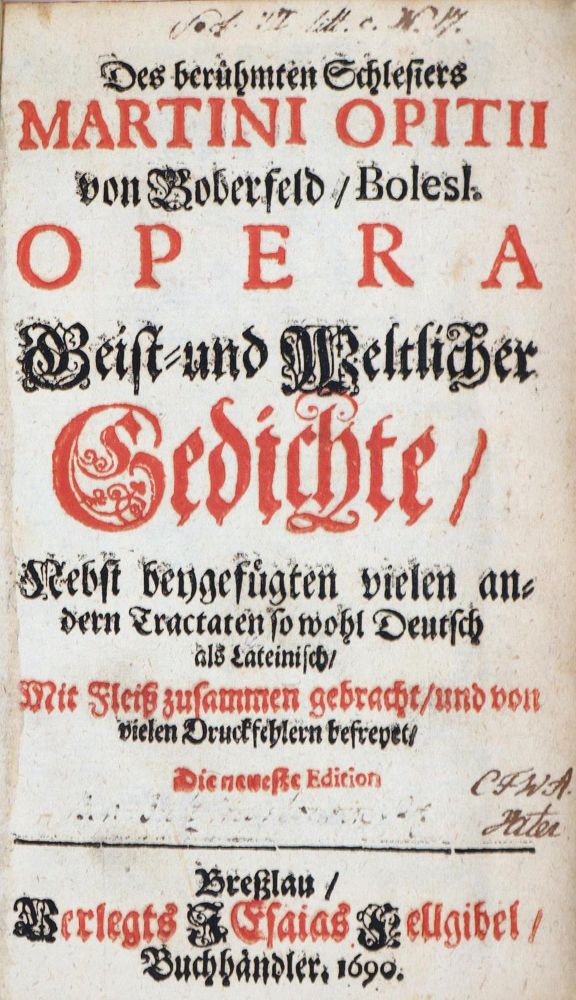 Des berühmten Schlesiers
MARTINI OPITII
von Boberfeld / Bolesl.
OPERA
Geist- und Weltlicher
Gedichte /
Nebst beygefügten vielen an-
dern Tractaten so wohl Deutsch
als Lateinisch/
Mit Fleiß zusammen gebracht/ und von
vielen Druckfehlern befreyet/
Die neueste Edition
C F W A.
Breßlau /
Verlegts JEsaias Fellgibel /
Buchhändler. 1690.